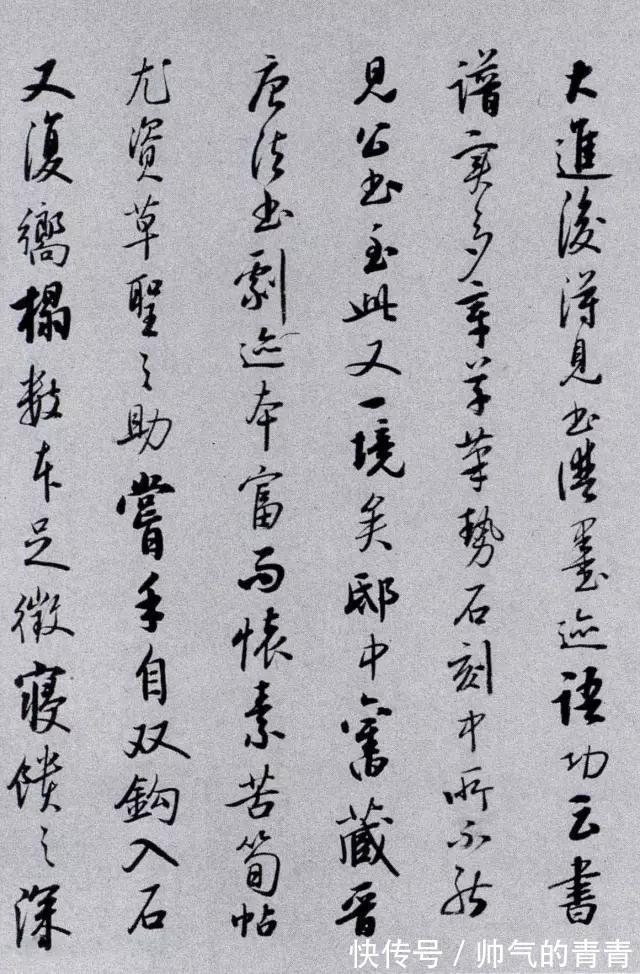 大進後得見書譜墨迹語功云書
譜實多章草筆勢石刻中所不能
見公書至此又一境矣邸中舊藏晉
唐法書劇迹本富而懷素苦筍帖
尤資草聖之助嘗手自双鈎入石
又復嚮搨數本足徵寢饋之深
快传号/帅气的青青